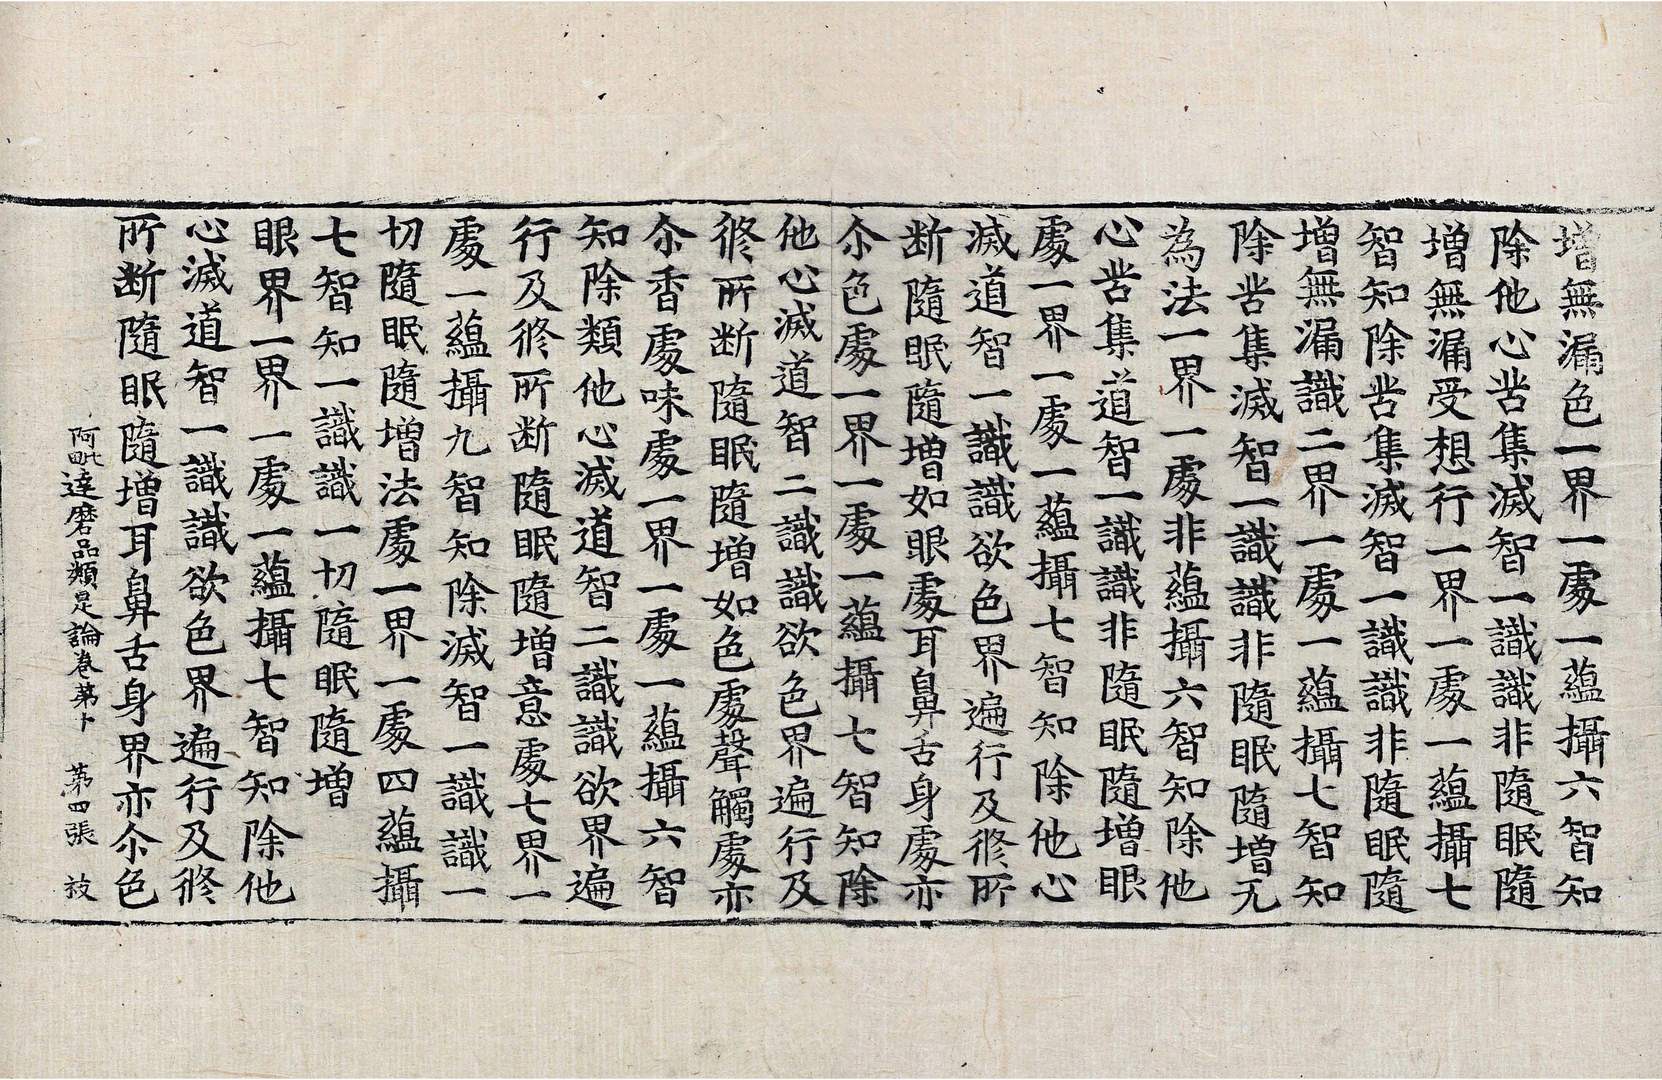 增無漏色一界一處一蘊攝六智知
除他心苦集滅智一識識非隨眠隨
增無漏受想行一界一處一蘊攝七
智知除苦集滅智一識識非隨眠隨
增無漏識二界一處一蘊攝七智知
除苦集滅智一識識非隨眠隨增无
為法一界一處非蘊攝六智知除他
心苦集道智一識識非隨眠隨增眼
處一界一處一蘊攝七智知除他心
滅道智一識識欲色界遍行及修所
断隨眠隨增如眼處耳鼻舌身處亦
尒色處一界一處一蘊攝七智知除
他心滅道智二識識欲色界遍行及
修所断隨眠隨增如色處聲觸處亦
尒香處味處一界一處一蘊攝六智
知除類他心滅道智二識識欲界遍
行及修所断隨眠隨增意處七界一
處一蘊攝九智知除滅智一識識一
切隨眠隨增法處一界一處四蘊攝
七智知一識識一切隨眠隨增
眼界一界一處一蘊攝七智知除他
心滅道智一識識欲色界遍行及修
所断隨眠隨增耳鼻舌身界亦尒色
阿毗達磨品類足論卷第十　第四張　枝